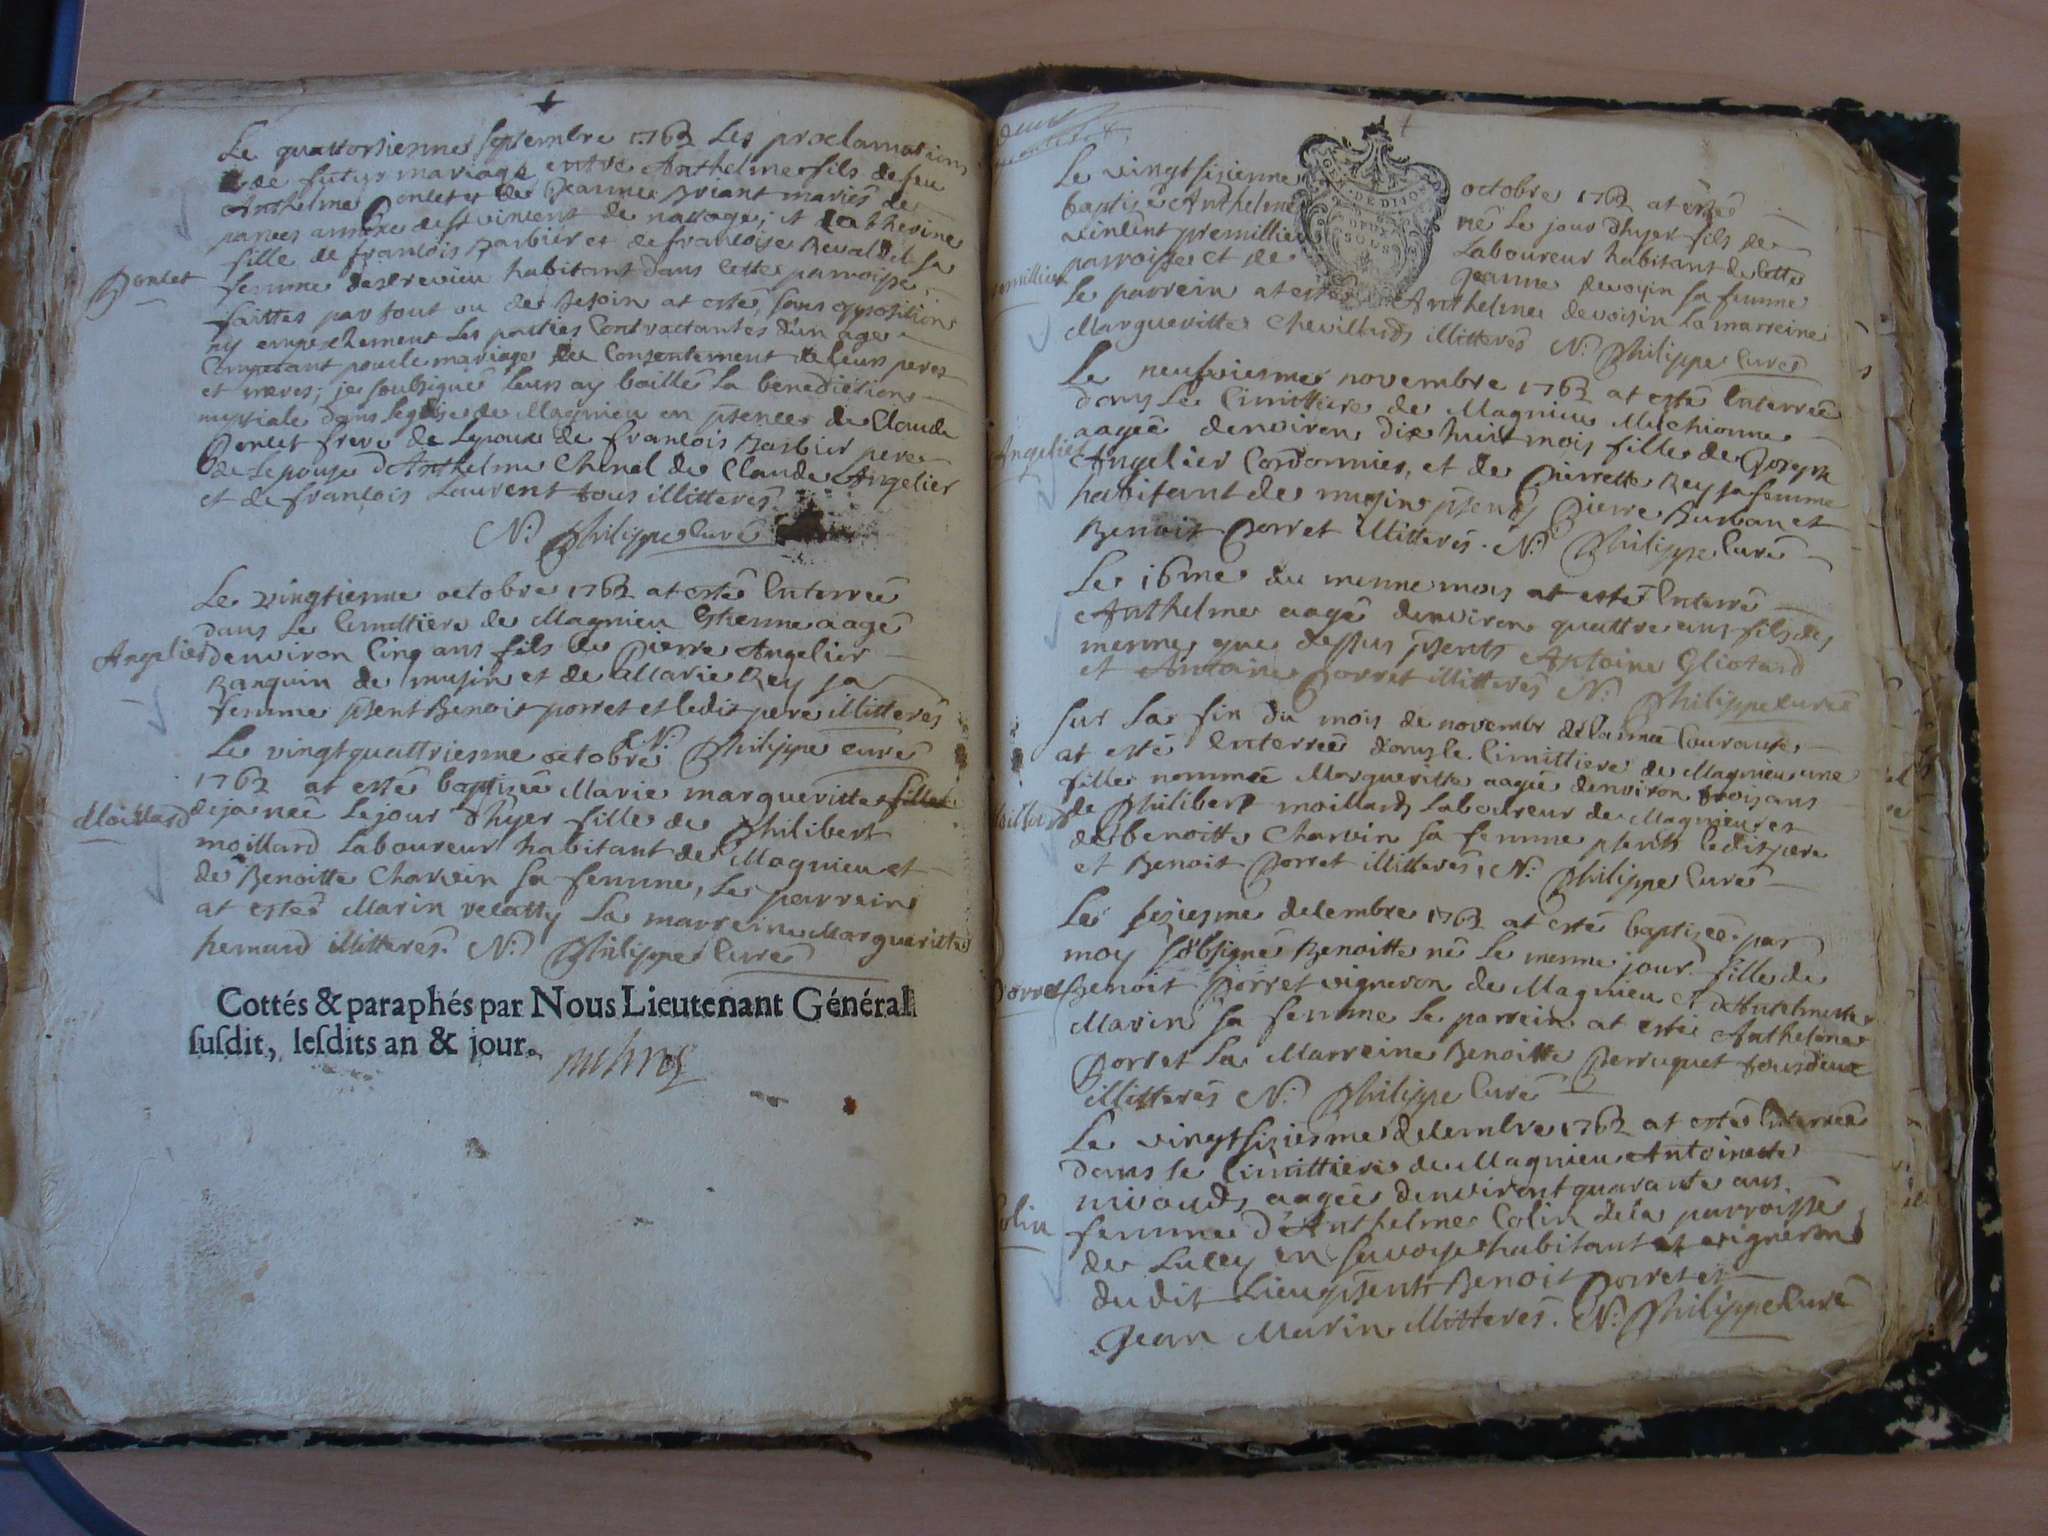 Le quattorsienne septembre 1762 Les proclamations
de futur mariage entre Anthelme fils de feu
Anthelme Poncet et de Jeanne Briant mariés de
parves annexe de St vincent de nattage; et Catherine
fille de francois Barbier et de francoise Revaldel sa
femme habitant dans cette parroisse,
Poncet
faittes par tout ou de besoin at esté, sans opposition
ny empechement Les parties Contractantes d'un age
Competant pour le mariage du Consentement de leurs peres
et meres; je soubsigné leurs ay baillé la benediction
nuptiale dans leglise de Magnieu en pñce de Claude
Poncet frere de Lepoux de francois Barbier pere
de Lepouse d'Anthelme Chenel de Claude Angelier
et de francois Laurent tous illitterés
N: Philippe Curé
Le vingtienne octobre 1762 at esté Enterré
dans Le Cimittiere de Magnieu Etienne aagé
Angelier
denviron Cinq ans fils de Pierre Angelier
de musin et de Marie Rey sa
femme pñent Benoit porret et ledit pere illitterés
N: Philippe curé
Le vingtquattriesme octobre
1762 at esté baptisée Marie margueritte fille
Moillard
deja née Le jour d'hyer fille de Philibert
moillard Laboureur habitant de Magnieu et
de Benoitte Charvin sa femme, Le parrein
at esté Marin recatty La marreine Margueritte
hemard illitterés. N: Philippe Curé
Cottés & paraphés par Nous Lieutenant Général
ſuſdit, leſdits an & jour.
GEN. DE DIJON
DEUX
SOLS
Le vingtsizienne octobre 1762 at esté
baptisé Anthelme né Le jour d'hyer fils de
vincent premillieu Laboureur habitant de Cette
parroisse et de Jeanne devoyin sa femme
Le parrein at esté Anthelme devoisin La marreine
Margueritte Chevillard illitterés N: Philippe Curé
Le neufviesme novembre 1762 at esté Enterrée
dans Le Cimittiere de Magnieu Michionne
Angelier
aagée denviron dix huit mois fille de Joseph
Angelier Cordonnier, et de Pierrette Rey sa femme
habitant de musin pñents Pierre Burban et
Benoit Porret illitterés. N: Philippe Curé
Le 16me du menne mois at esté Enterré
Anthelme aagé denviron quattre ans fils des
menne que dessus pñents Antoine Gliotard
et Antoine Porret illitterés N: Philippe Curé
Sur La fin du mois de novembr de lannée Courante
at esté Enterrée dans le Cimittiere de Magnieu une
fille nommée Margueritte aagée denviron trois ans
de Philibert moillard Laboureur de Magnieu et
de benoitte Charvin sa femme pñents ledit pere
et Benoit Porret illitterés, N: Philippe Curé
Le siziesme decembre 1762 at esté baptizée par
moy sobsigné Benoitte né Le menne jour fille de
Porret
Benoit Porret vigneron de Magnieu et d'Antelmette
Marin sa femme Le parrein at esté Anthelme
Porret La Marreine Benoitte Perruquet tous deux
illitterés N: Philippe Curé
Le vingtsiziesme decembre 1762 at esté Enterrée
dans le Cimittiere de Magnieu Antoinette
nivaud, aagée denviront quarante ans
Colin
femme d'Anthelme Colin dela parroisse
de Lucey en savoye habitant et vigneron
du dit Lieu pñents Benoit Porret et
Jean Marin illitterés. N: Philippe Curé